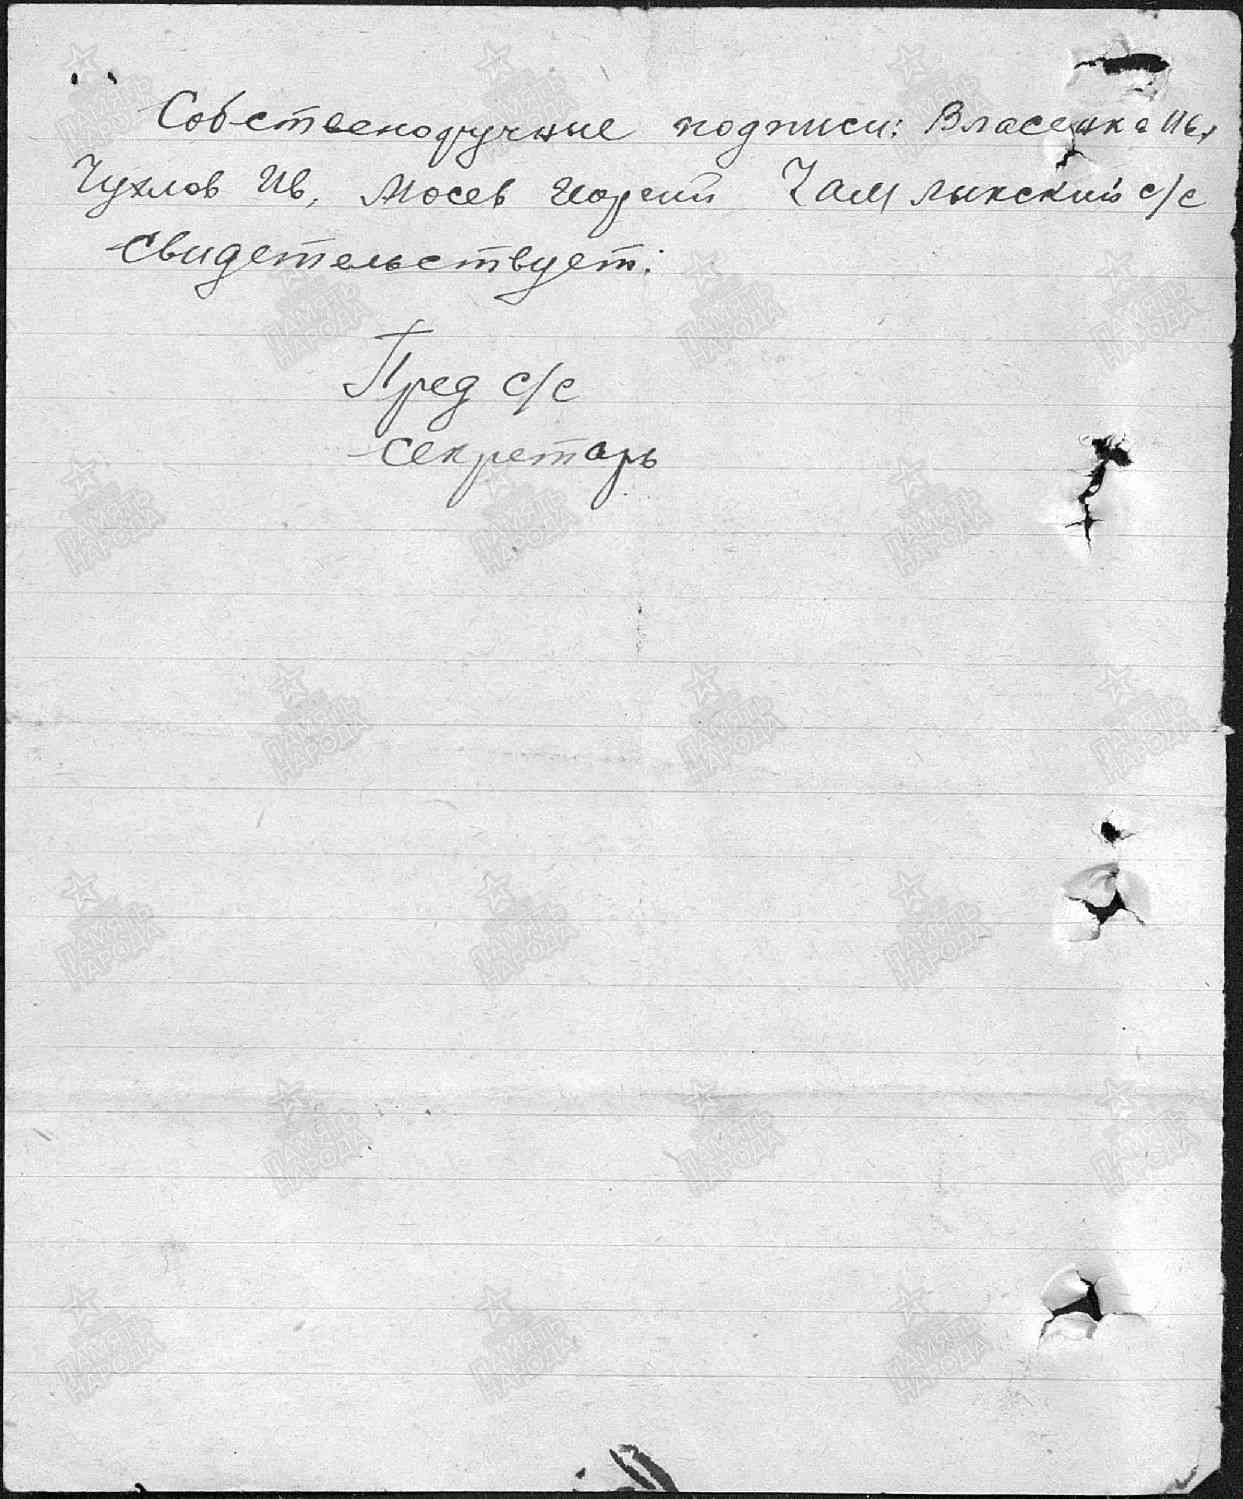 Собственоручные подписи: Власенка Ив,
Чухлов Ив, Мосев Георгий Чамлыкский с/с
свидетельствует:
Пред с/с
секретарь